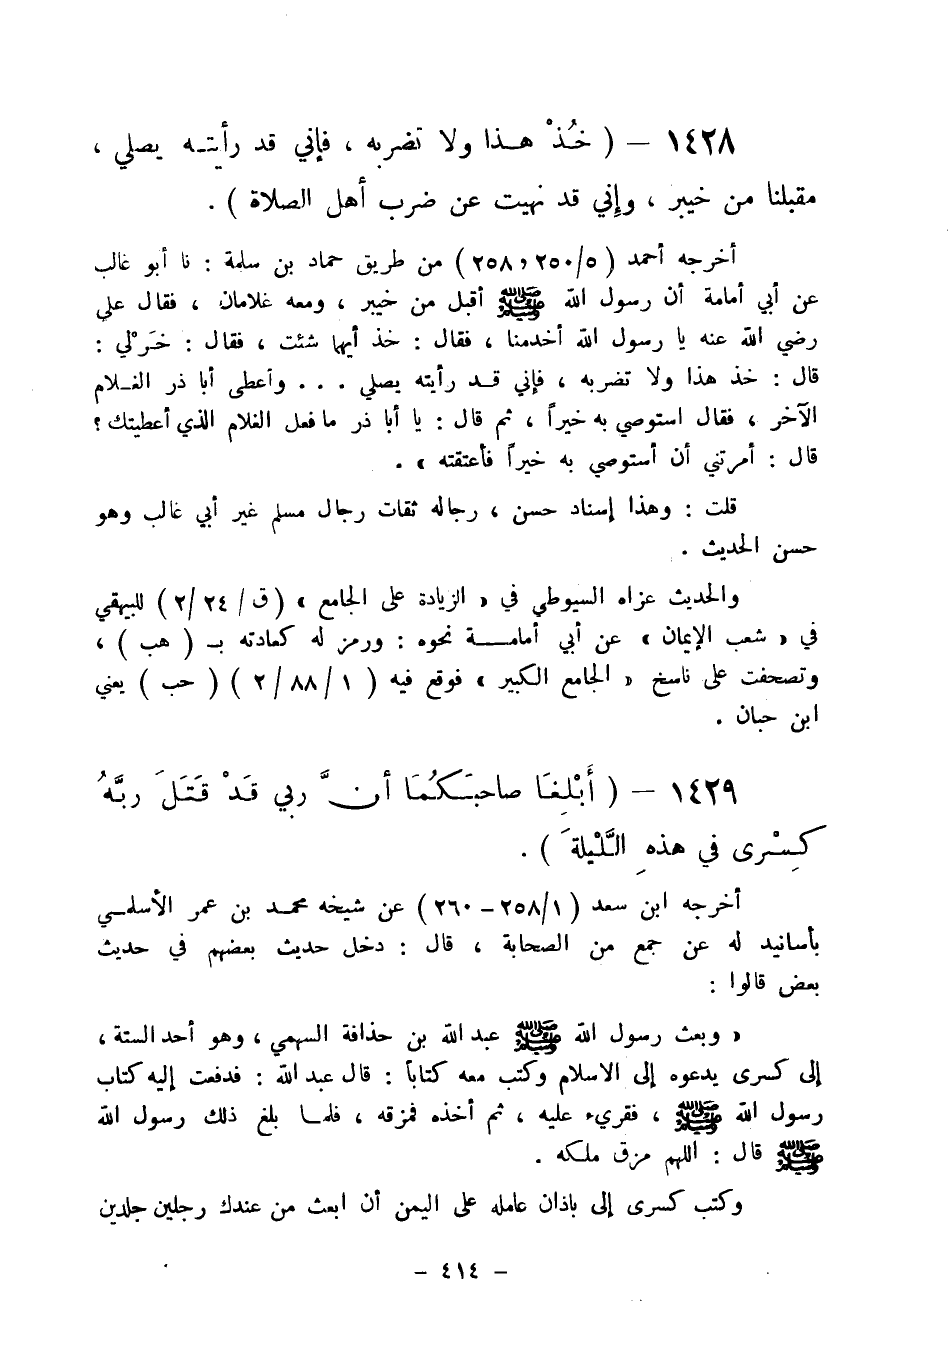 ١٤٢٨ – ( خُذْ هـذا ولا تضربه ، فإني قد رأيتـه يصلي ،
مقبلنا من خيبر ، وإِني قد نهيت عن ضرب أهل الصلاة ) .
أخرجه أحمد ( ٢٥٨،٢٥٠/٥ ) من طريق حماد بن سلمة : نا أبو غالب
عن أبي أمامة أن رسول الله ﷺ أقبل من خيبر ، ومعه غلامان ، فقال علي
رضي الله عنه يا رسول الله أخدمنا ، فقال : خذ أيها شئت ، فقال : خَرْلي :
قال : خذ هذا ولا تضربه ، فإني قـد رأيته يصلي . . . وأعطى أبا ذر الغـلام
الآخر ، فقال استوصي به خيراً ، ثم قال : يا أبا ذر ما فعل الغلام الذي أعطيتك ؟
قال : أمرتني أن أستوصي به خيراً فأعتقته » .
قلت : وهذا إسناد حسن ، رجاله ثقات رجال مسلم غير أبي غالب وهو
حسن الحديث .
والحديث عزاه السيوطي في « الزيادة على الجامع » ( ق / ٢٤ /٢ ) للبيهقي
في « شعب الإيمان » عن أبي أمامـــة نحوه : ورمز له كعادته بـ ( هب ) ،
وتصحفت على ناسخ « الجامع الكبير » فوقع فيه ( ١ /٨٨ /٢ ) ( حب ) يعني
ابن حبان .
١٤٢٩ – ( أَبْلِغَا صاحبَـكُمَا أنَّ ربي قَدْ قَتَلَ ربَّهُ
كِسْرى في هذهِ اللَّيْلةَ ) .
أخرجه ابن سعد ( ٢٥٨/١ – ٢٦٠ ) عن شيخه محمـد بن عمر الأسلمـي
بأسانيد له عن جمع من الصحابة ، قال : دخل حديث بعضهم في حديث
بعض قالوا :
« وبعث رسول الله ﷺ عبد الله بن حذافة السهمي ، وهو أحد الستة ،
إلى كسرى يدعوه إلى الاسلام وكتب معه كتاباً : قال عبد الله : فدفعت إليه كتاب
رسول الله ﷺ ، فقريء عليه ، ثم أخذه فمزقه ، فلمـا بلغ ذلك رسول الله
ﷺ قال : اللهم مزق ملكه .
وكتب كسرى إلى باذان عامله على اليمن أن ابعث من عندك رجلين جلدين
– ٤١٤ –